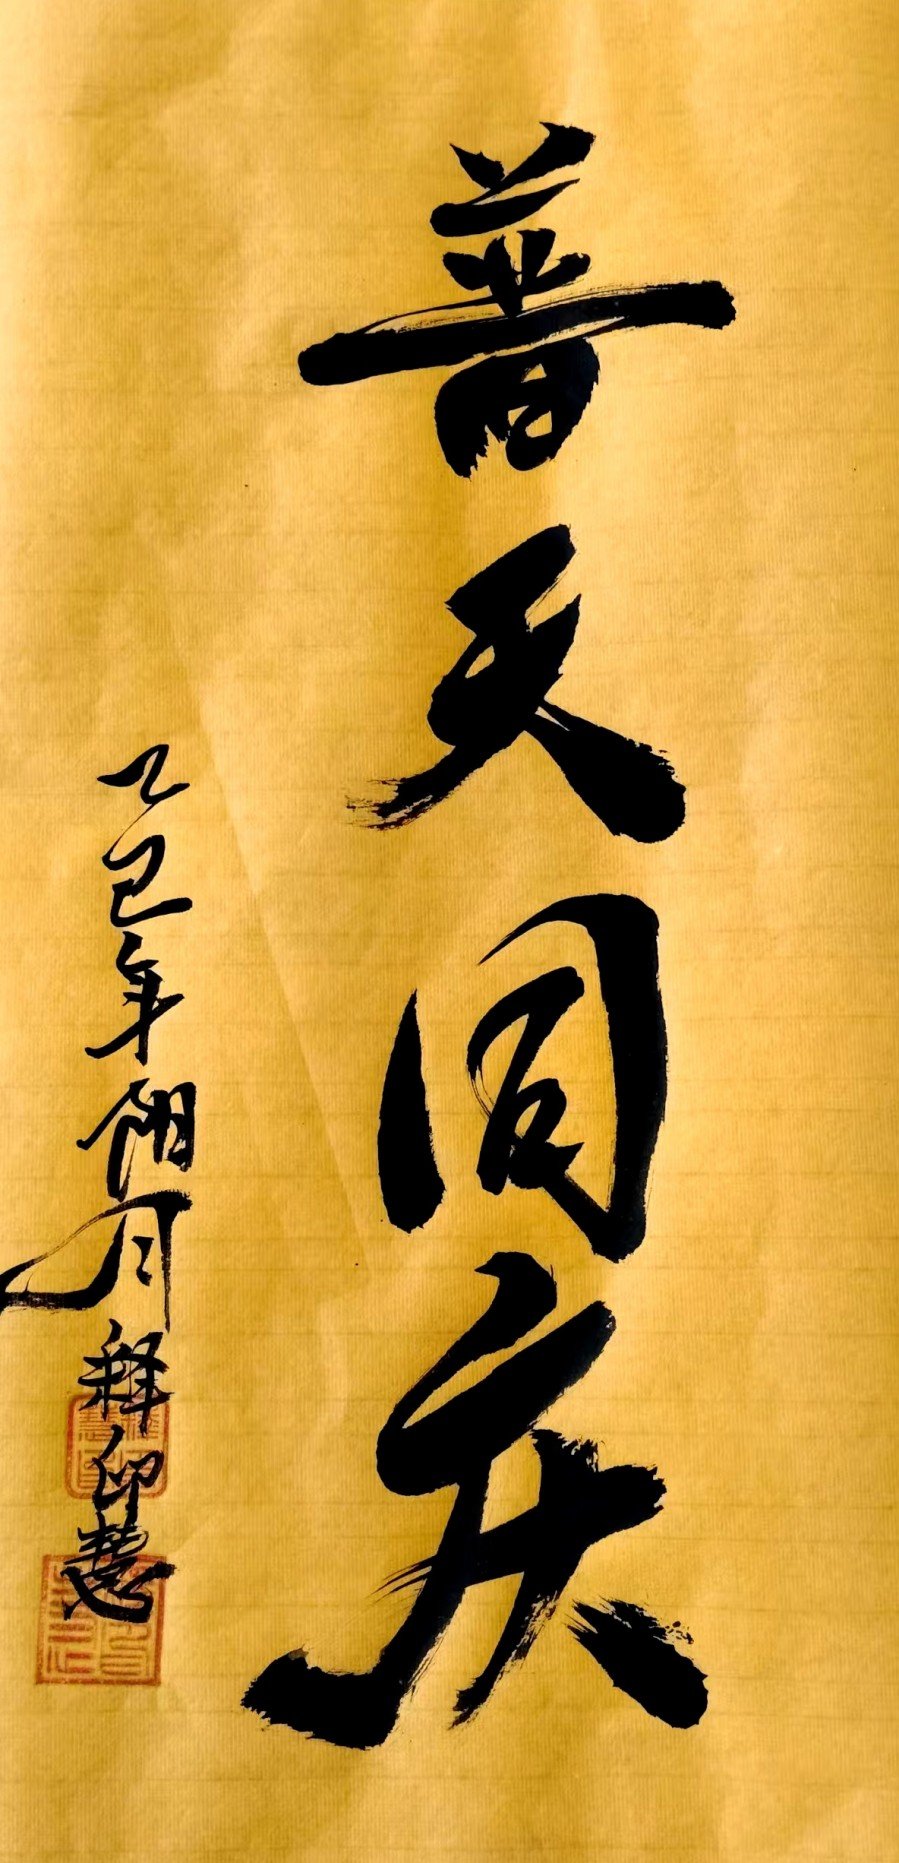 普天同庆
乙巳年阳月释印慧